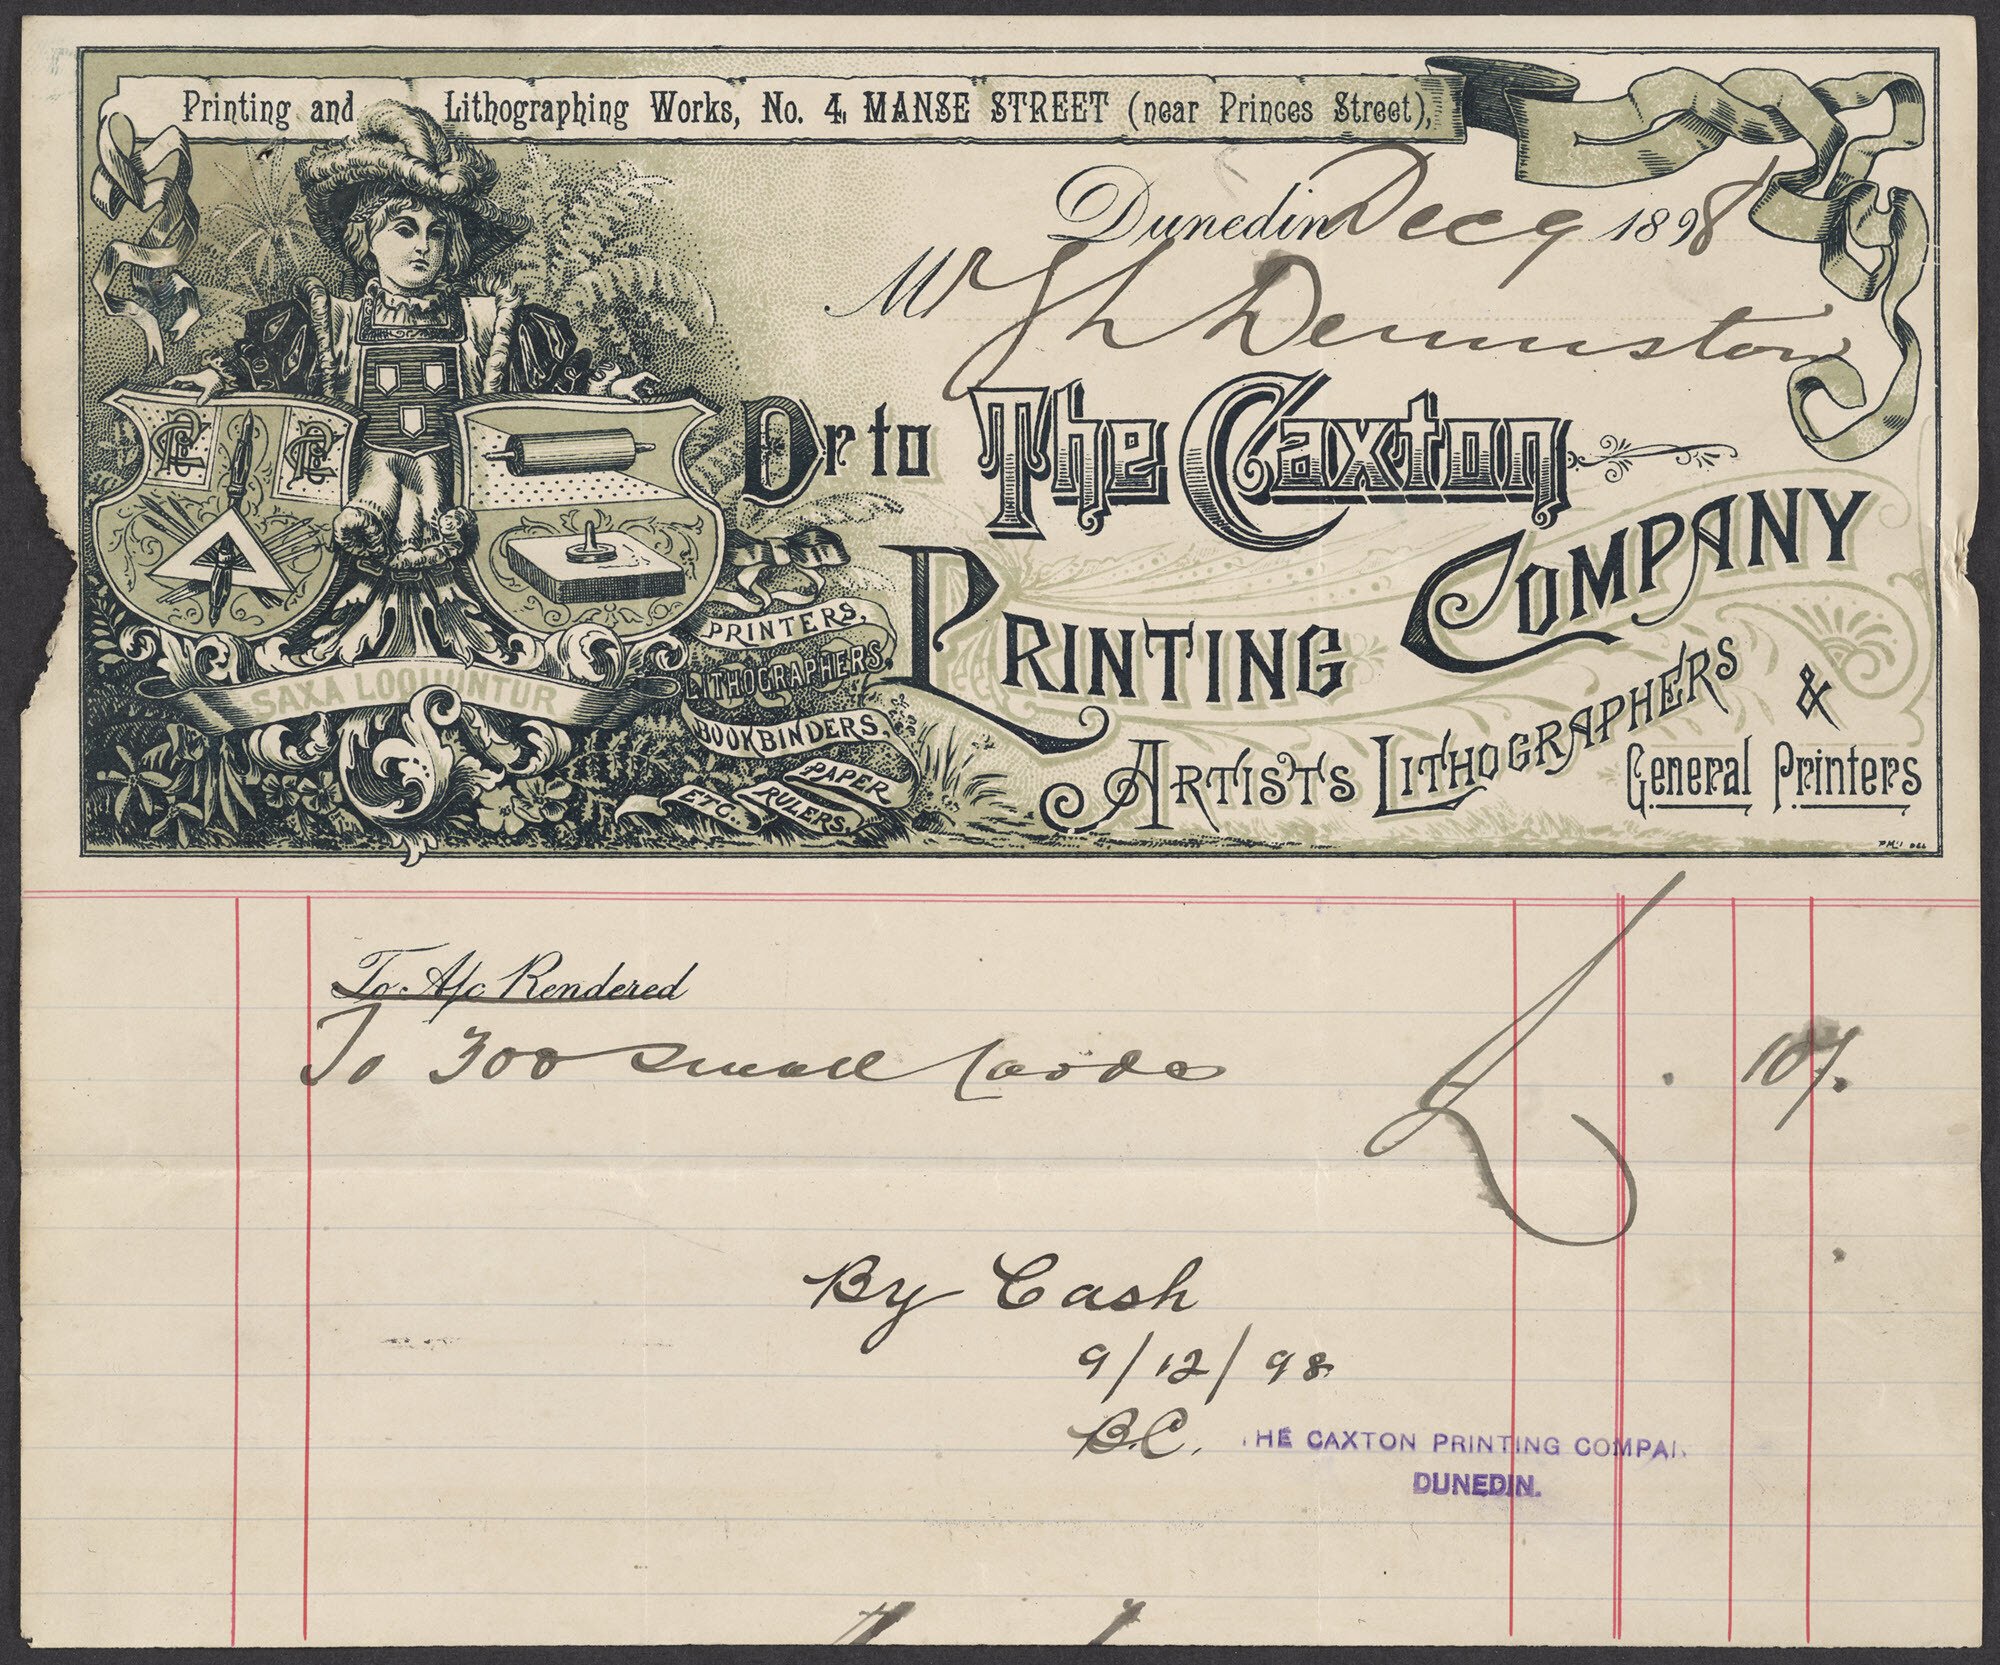 Printing and Lithographing Works, No. 4, MANSE STREET (near Princes Street),
Dunedin Dec 9 1898
Mr Denniston
Dr to The Caxton
PRINTING COMPANY
ARTISTS LITHOGRAPHERS &
General Printers
CPC
CPC
SAXA LOQUUNTUR
PRINTERS,
LITHOGRAPHERS,
BOOKBINDERS,
PAPER
RULERS,
ETC.
To A/c Rendered
To 300 small Cards £ . 10/.
By Cash
9/12/98
B.C.
THE CAXTON PRINTING COMPAN
DUNEDIN.